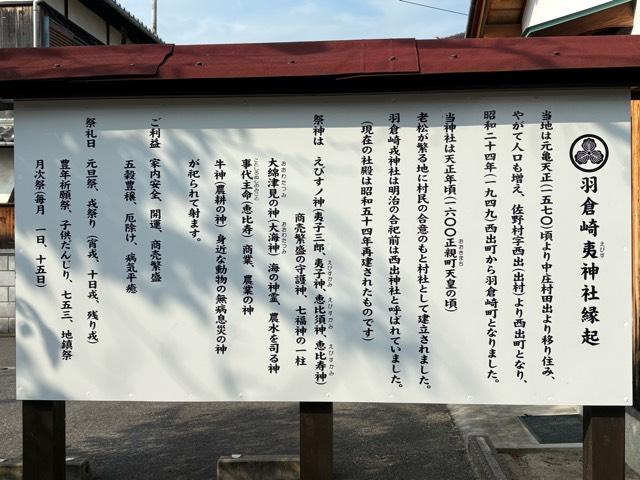 羽倉崎夷神社縁起
えびす
当地は元亀天正(一五七〇)頃より中庄村田出より移り住み、
やがて人口も増え、佐野村字西出(出村)より西出町となり、
昭和二十四年(一九四九)西出町から羽倉崎町となりました。
当神社は天正年頃(一六〇〇正親町天皇の頃)
おおぎまち
老松が繁る地に村民の合意のもと村社として建立されました。
羽倉崎戎神社は明治の合祀前は西出神社と呼ばれていました。
(現在の社殿は昭和五十四年再建されたものです)
祭神は えびすノ神(夷子三郎、夷子神、恵比須神、恵比寿神)
えびすかみ えびすかみ えびすかみ
商売繁盛の守護神、七福神の一柱
大綿津見の神(大海神)海の神霊、農水を司る神
おおわたつみ おおわたつみ
事代主命(恵比寿)商業、農業の神
ことしろぬしのみこと
牛神(農耕の神)身近な動物の無病息災の神
が祀られて射ます。
ご利益 家内安全、開運、商売繁盛
五穀豊穣、厄除け、病気平癒
祭礼日 元旦祭、戎祭り(宵戎、十日戎、残り戎)
豊年祈願祭、子供だんじり、七五三、地鎮祭
月次祭(毎月 一日、十五日)